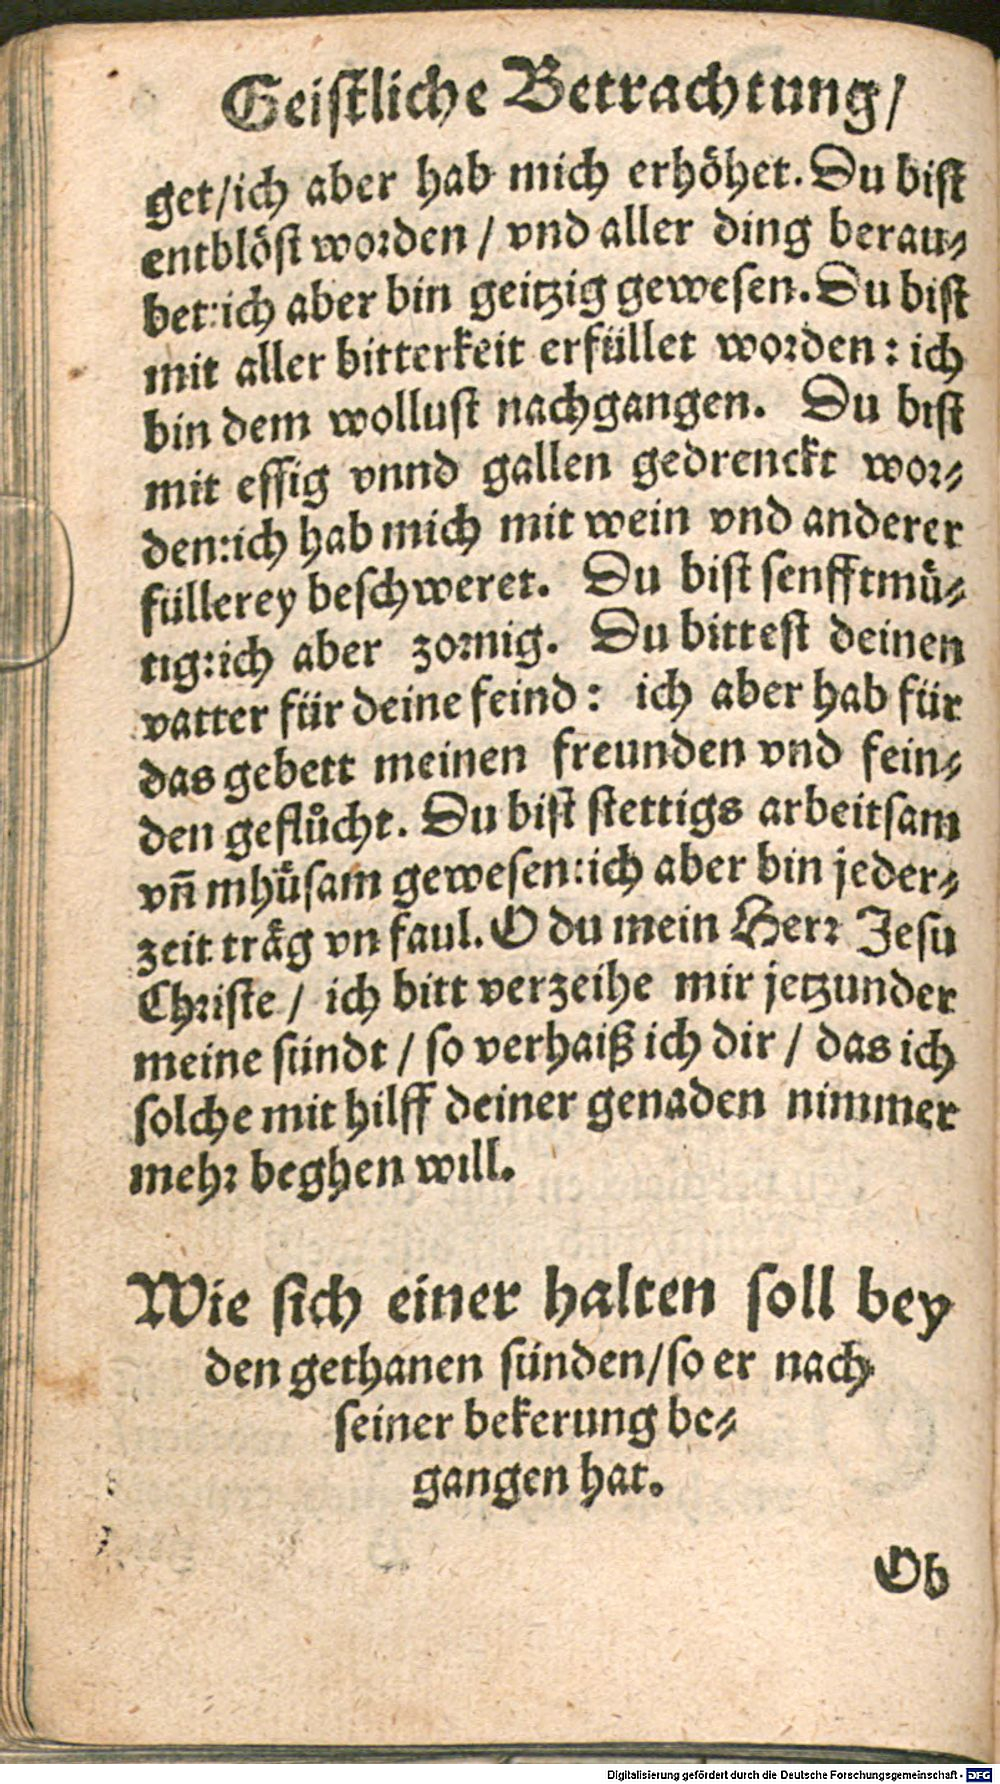 Geistliche Betrachtung/
get/ich aber hab mich erhöhet. Du bist
entblöst worden / vnd aller ding berau⸗
bet:ich aber bin geitzig gewesen. Du bist
mit aller bitterkeit erfüllet worden: ich
bin dem wollust nachgangen. Du bist
mit essig vnnd gallen gedrenckt wor⸗
den:ich hab mich mit wein vnd anderer
füllerey beschweret. Du bist senfftmü⸗
tig:ich aber zornig. Du bittest deinen
vatter für deine feind: ich aber hab für
das gebett meinen freunden vnd fein⸗
den geflůcht. Du bist stettigs arbeitsam
vn̄ mhüsam gewesen:ich aber bin jeder⸗
zeit träg vn faul. O du mein Herr Jesu
Christe / ich bitt verzeihe mir jetzunder
meine sündt / so verhaiß ich dir / das ich
solche mit hilff deiner genaden nimmer
mehr beghen will.
Wie sich einer halten soll bey
den gethanen sünden/so er nach
seiner bekerung be⸗
gangen hat.
Ob
Digitalisierung gefördert durch die Deutsche Forschungsgemeinschaft - DFG